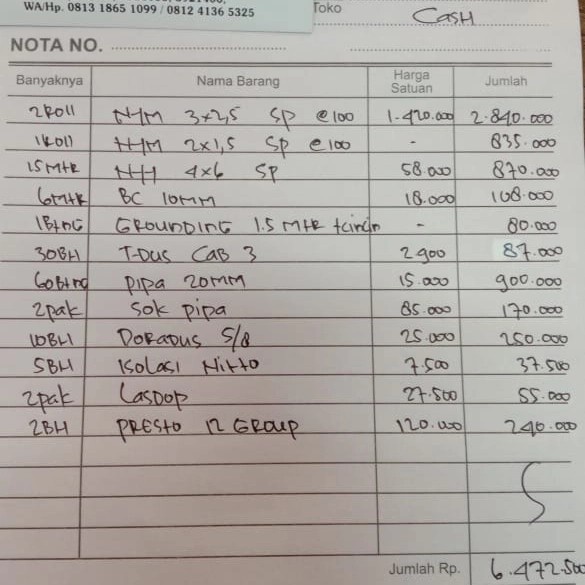 WA/Hp. 0813 1865 1099 / 0812 4136 5325
Toko CASH
NOTA NO.
Banyaknya Nama Barang Harga Satuan Jumlah
2Roll NYM 3x2,5 SP @100 1.420.000 2.840.000
1Roll NYM 2x1,5 SP @100 - 835.000
15MtR NYY 4x6 SP 58.000 870.000
6MtR BC 10MM 18.000 108.000
1BtNG GROUNDING 1.5 MtR +cincin - 80.000
30BH T-Dus CAB 3 2900 87.000
60Btng pipa 20MM 15.000 900.000
2pak Sok pipa 85.000 170.000
10BH DORADUS 5/8 25.000 250.000
5BH ISOLASI Nitto 7.500 37.500
2pak LASDOP 27.500 55.000
2BH PRESTO 12 GROUP 120.000 240.000
Jumlah Rp. 6.472.500